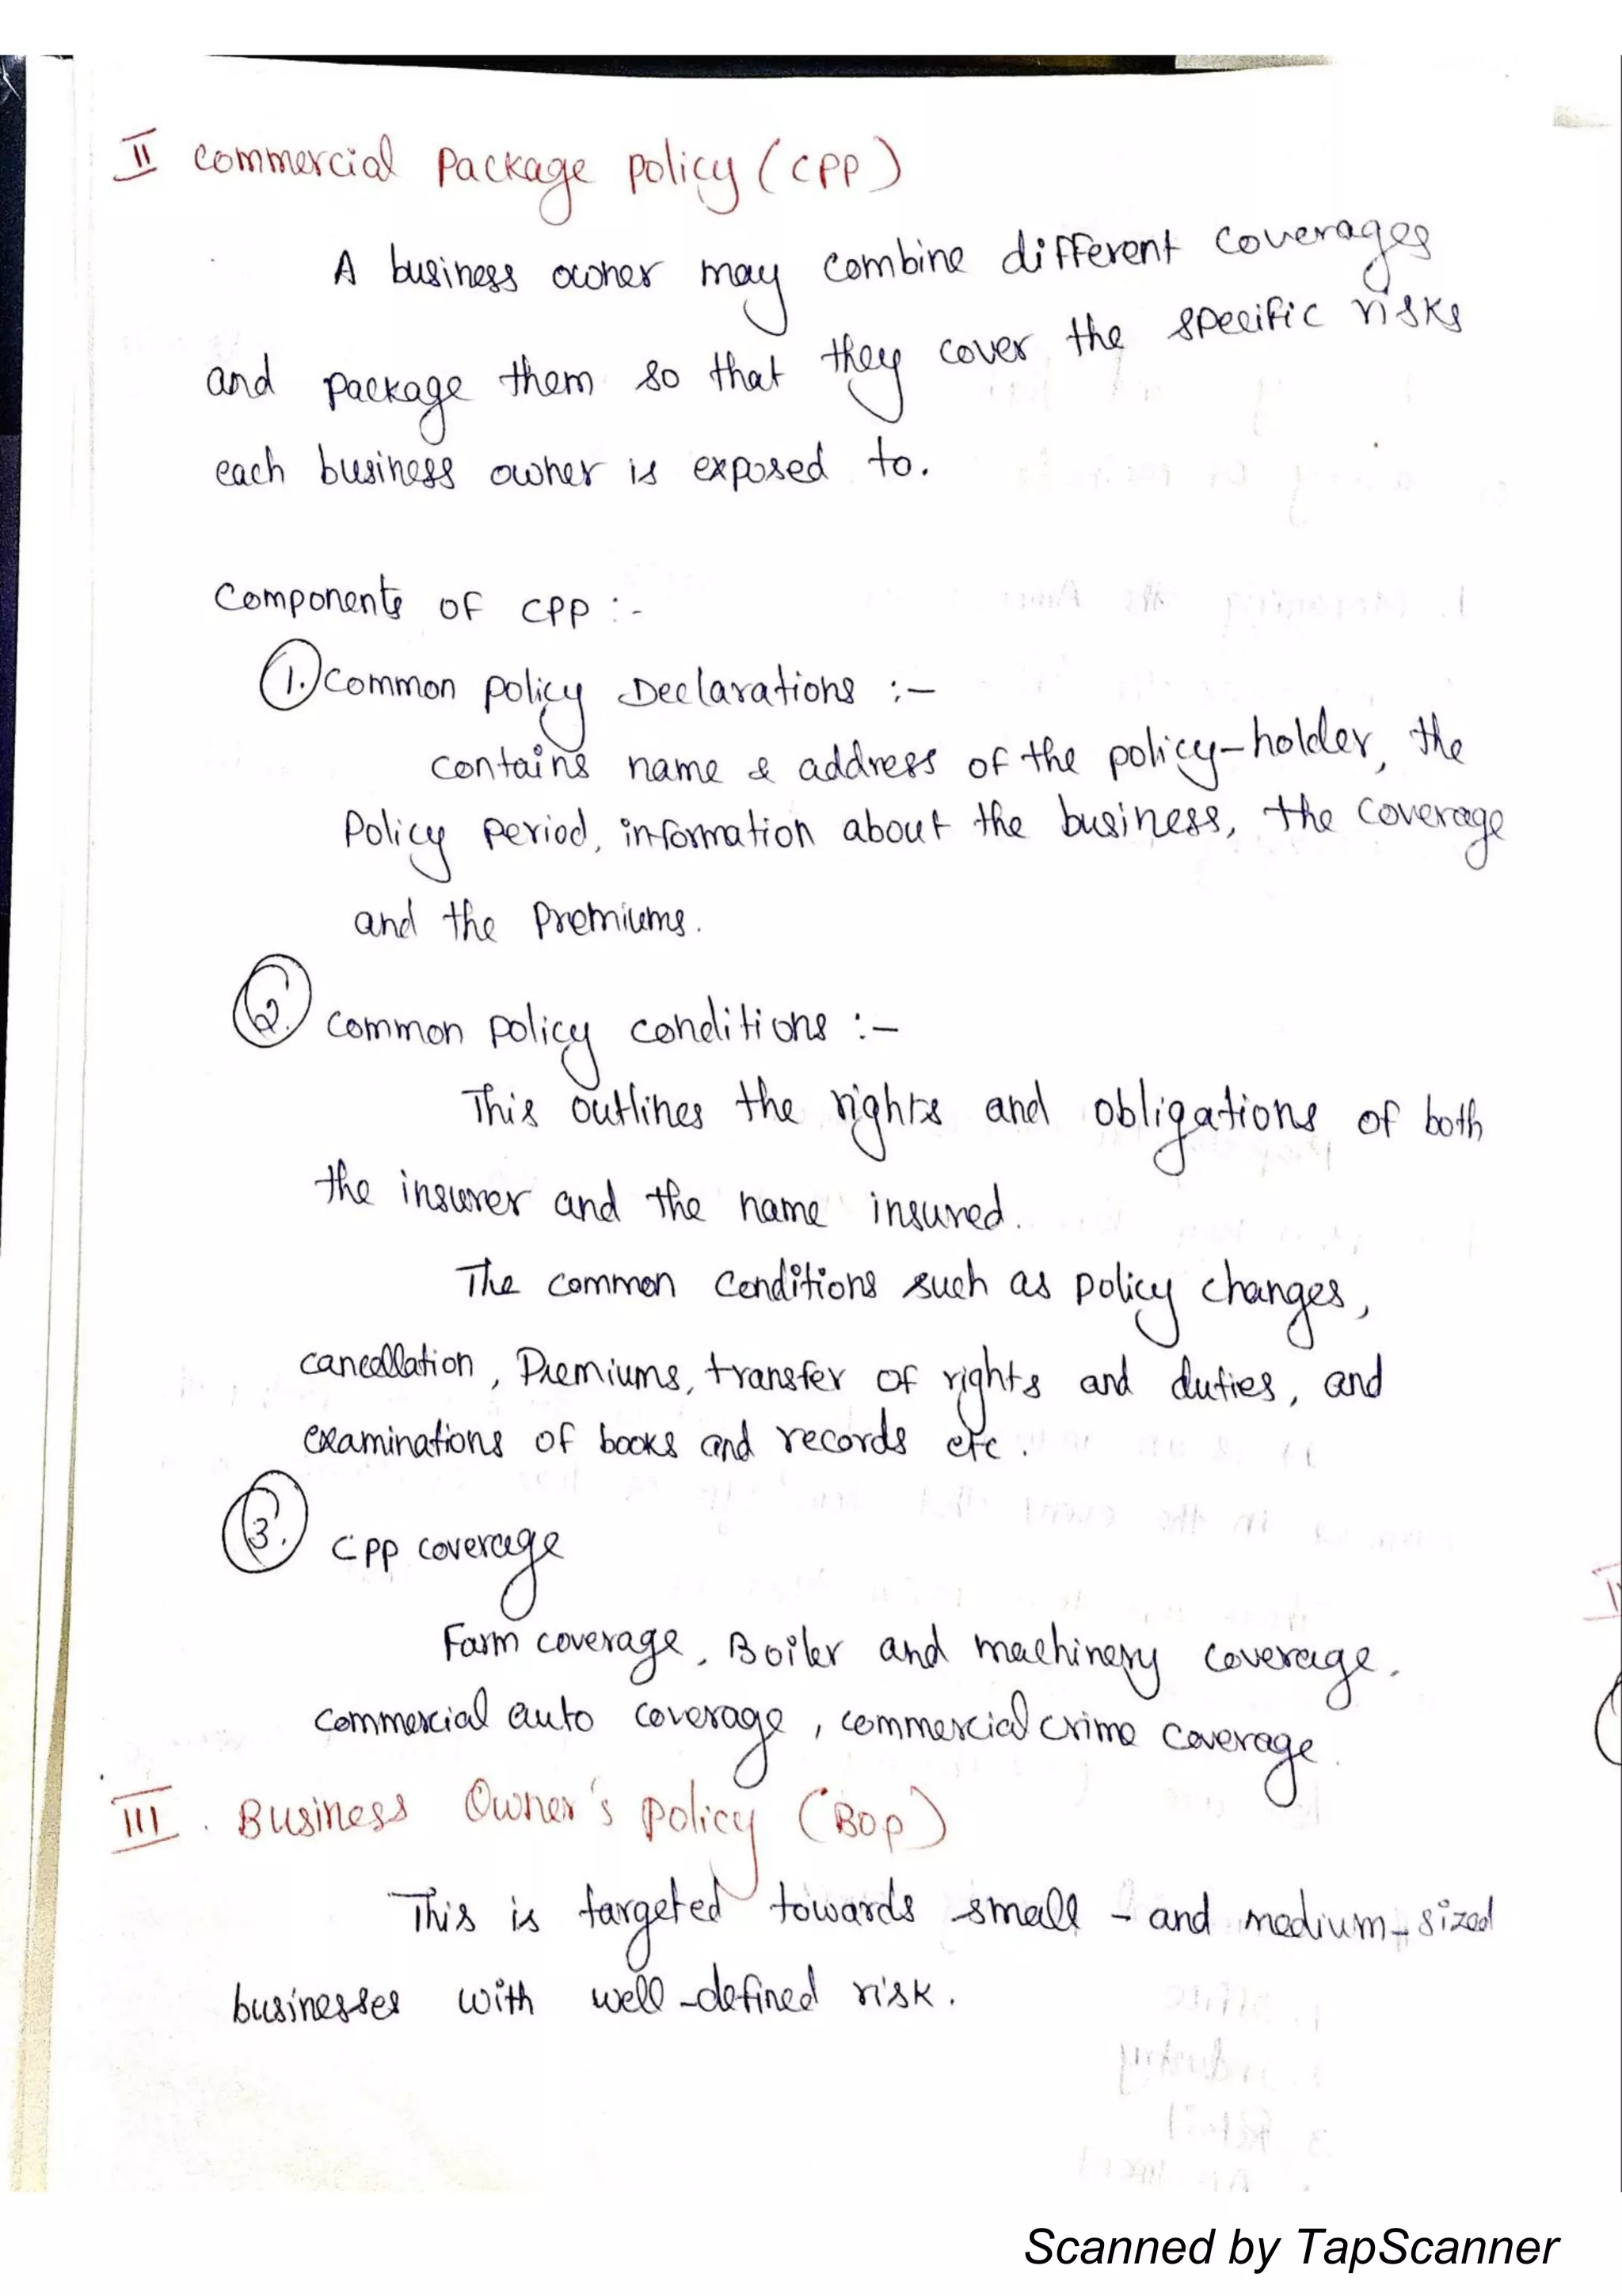 II Commercial Package Policy (CPP)
A business owner may combine different coverages
and package them so that they cover the specific risks
each business owner is exposed to.
Components of CPP :-
1. Common Policy Declarations :-
Contains name & address of the policy-holder, the
Policy Period, information about the business, the coverage
and the Premiums.
2. Common Policy Conditions :-
This outlines the rights and obligations of both
the insurer and the name insured.
The common conditions such as policy changes,
cancellation, Premiums, transfer of rights and duties, and
examinations of books and records etc.
3. CPP coverage
Farm coverage, Boiler and machinery coverage,
commercial auto coverage, commercial crime coverage.
III. Business Owner's Policy (BOP)
This is targeted towards small - and medium-sized
businesses with well-defined risk.
Scanned by TapScanner